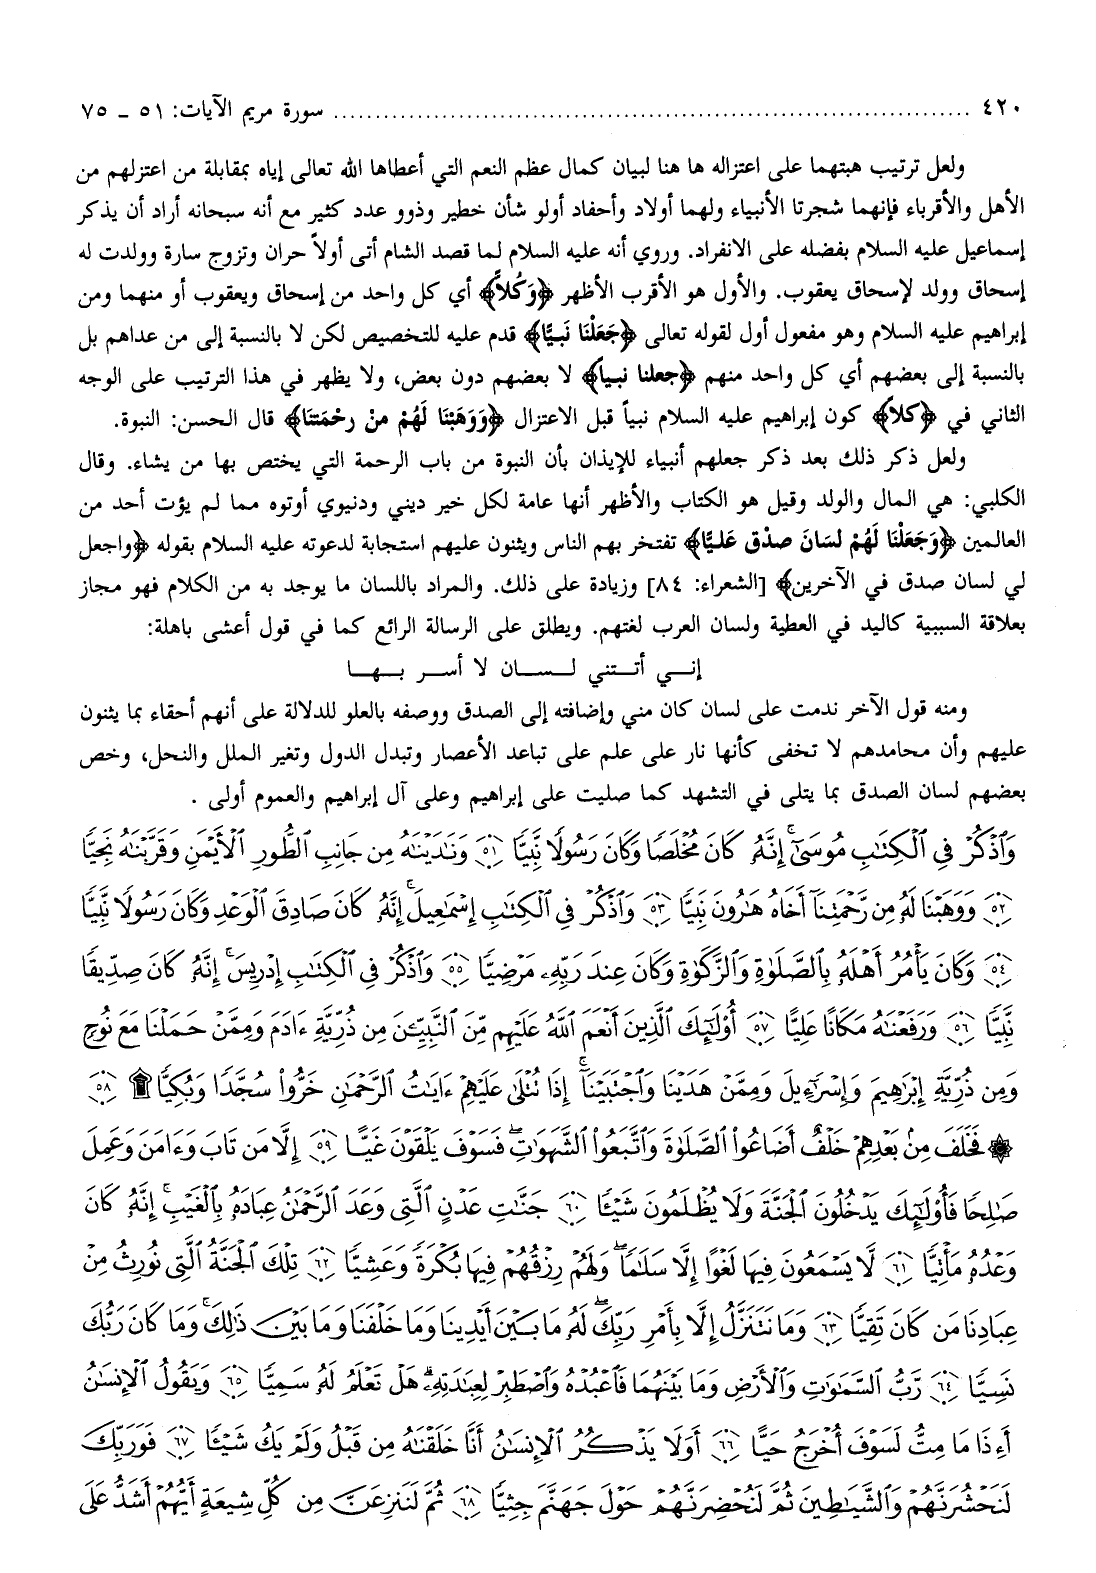 ٤٢٠ ........................................ سورة مريم الآيات: ٥١ ـ ٧٥
ولعل ترتيب هبتهما على اعتزاله ها هنا لبيان كمال عظم النعم التي أعطاها الله تعالى إياه بمقابلة من اعتزلهم من
الأهل والأقرباء فإنهما شجرتا الأنبياء ولهما أولاد وأحفاد أولو شأن خطير وذوو عدد كثير مع أنه سبحانه أراد أن يذكر
إسماعيل عليه السلام بفضله على الانفراد. وروي أنه عليه السلام لما قصد الشام أتى أولاً حران وتزوج سارة وولدت له
إسحاق وولد لإسحاق يعقوب. والأول هو الأقرب الأظهر ﴿وَكُلاً﴾ أي كل واحد من إسحاق ويعقوب أو منهما ومن
إبراهيم عليه السلام وهو مفعول أول لقوله تعالى ﴿جَعَلْنَا نَبيًّا﴾ قدم عليه للتخصيص لكن لا بالنسبة إلى من عداهم بل
بالنسبة إلى بعضهم أي كل واحد منهم ﴿جعلنا نبياً﴾ لا بعضهم دون بعض، ولا يظهر في هذا الترتيب على الوجه
الثاني في ﴿كلاً﴾ كون إبراهيم عليه السلام نبياً قبل الاعتزال ﴿وَوَهَبْنَا لَهُمْ منْ رحْمَتنَا﴾ قال الحسن: النبوة.
ولعل ذكر ذلك بعد ذكر جعلهم أنبياء للإيذان بأن النبوة من باب الرحمة التي يختص بها من يشاء. وقال
الكلبي: هي المال والولد وقيل هو الكتاب والأظهر أنها عامة لكل خير ديني ودنيوي أوتوه مما لم يؤت أحد من
العالمين ﴿وَجَعَلْنَا لَهُمْ لسَانَ صدْق عَليًّا﴾ تفتخر بهم الناس ويثنون عليهم استجابة لدعوته عليه السلام بقوله ﴿واجعل
لي لسان صدق في الآخرين﴾ [الشعراء: ٨٤] وزيادة على ذلك. والمراد باللسان ما يوجد به من الكلام فهو مجاز
بعلاقة السببية كاليد في العطية ولسان العرب لغتهم. ويطلق على الرسالة الرائع كما في قول أعشى باهلة:
إنـــي أتـــتني لـــســـان لا أســـر بـــهـــا
ومنه قول الآخر ندمت على لسان كان مني وإضافته إلى الصدق ووصفه بالعلو للدلالة على أنهم أحقاء بما يثنون
عليهم وأن محامدهم لا تخفى كأنها نار على علم على تباعد الأعصار وتبدل الدول وتغير الملل والنحل، وخص
بعضهم لسان الصدق بما يتلى في التشهد كما صليت على إبراهيم وعلى آل إبراهيم والعموم أولى .
وَٱذْكُرْ فِي ٱلْكِتَٰبِ مُوسَىٰٓ إِنَّهُۥ كَانَ مُخْلَصًا وَكَانَ رَسُولًا نَّبِيًّا ﴿٥١﴾ وَنَٰدَيْنَٰهُ مِن جَانِبِ ٱلطُّورِ ٱلْأَيْمَنِ وَقَرَّبْنَٰهُ نَجِيًّا
﴿٥٢﴾ وَوَهَبْنَا لَهُۥ مِن رَّحْمَتِنَآ أَخَاهُ هَٰرُونَ نَبِيًّا ﴿٥٣﴾ وَٱذْكُرْ فِي ٱلْكِتَٰبِ إِسْمَٰعِيلَ إِنَّهُۥ كَانَ صَادِقَ ٱلْوَعْدِ وَكَانَ رَسُولًا نَّبِيًّا
﴿٥٤﴾ وَكَانَ يَأْمُرُ أَهْلَهُۥ بِٱلصَّلَوٰةِ وَٱلزَّكَوٰةِ وَكَانَ عِندَ رَبِّهِۦ مَرْضِيًّا ﴿٥٥﴾ وَٱذْكُرْ فِي ٱلْكِتَٰبِ إِدْرِيسَ إِنَّهُۥ كَانَ صِدِّيقًا
نَّبِيًّا ﴿٥٦﴾ وَرَفَعْنَٰهُ مَكَانًا عَلِيًّا ﴿٥٧﴾ أُو۟لَٰٓئِكَ ٱلَّذِينَ أَنْعَمَ ٱللَّهُ عَلَيْهِم مِّنَ ٱلنَّبِيِّـۧنَ مِن ذُرِّيَّةِ ءَادَمَ وَمِمَّنْ حَمَلْنَا مَعَ نُوحٍ
وَمِن ذُرِّيَّةِ إِبْرَٰهِيمَ وَإِسْرَٰٓءِيلَ وَمِمَّنْ هَدَيْنَا وَٱجْتَبَيْنَآ إِذَا تُتْلَىٰ عَلَيْهِمْ ءَايَٰتُ ٱلرَّحْمَٰنِ خَرُّوا۟ سُجَّدًا وَبُكِيًّا ۩ ﴿٥٨﴾
۞ فَخَلَفَ مِنۢ بَعْدِهِمْ خَلْفٌ أَضَاعُوا۟ ٱلصَّلَوٰةَ وَٱتَّبَعُوا۟ ٱلشَّهَوَٰتِ فَسَوْفَ يَلْقَوْنَ غَيًّا ﴿٥٩﴾ إِلَّا مَن تَابَ وَءَامَنَ وَعَمِلَ
صَٰلِحًا فَأُو۟لَٰٓئِكَ يَدْخُلُونَ ٱلْجَنَّةَ وَلَا يُظْلَمُونَ شَيْـًٔا ﴿٦٠﴾ جَنَّٰتِ عَدْنٍ ٱلَّتِي وَعَدَ ٱلرَّحْمَٰنُ عِبَادَهُۥ بِٱلْغَيْبِ إِنَّهُۥ كَانَ
وَعْدُهُۥ مَأْتِيًّا ﴿٦١﴾ لَّا يَسْمَعُونَ فِيهَا لَغْوًا إِلَّا سَلَٰمًا وَلَهُمْ رِزْقُهُمْ فِيهَا بُكْرَةً وَعَشِيًّا ﴿٦٢﴾ تِلْكَ ٱلْجَنَّةُ ٱلَّتِي نُورِثُ مِنْ
عِبَادِنَا مَن كَانَ تَقِيًّا ﴿٦٣﴾ وَمَا نَتَنَزَّلُ إِلَّا بِأَمْرِ رَبِّكَ لَهُۥ مَا بَيْنَ أَيْدِينَا وَمَا خَلْفَنَا وَمَا بَيْنَ ذَٰلِكَ وَمَا كَانَ رَبُّكَ
نَسِيًّا ﴿٦٤﴾ رَّبُّ ٱلسَّمَٰوَٰتِ وَٱلْأَرْضِ وَمَا بَيْنَهُمَا فَٱعْبُدْهُ وَٱصْطَبِرْ لِعِبَٰدَتِهِۦ هَلْ تَعْلَمُ لَهُۥ سَمِيًّا ﴿٦٥﴾ وَيَقُولُ ٱلْإِنسَٰنُ
أَءِذَا مَا مِتُّ لَسَوْفَ أُخْرَجُ حَيًّا ﴿٦٦﴾ أَوَلَا يَذْكُرُ ٱلْإِنسَٰنُ أَنَّا خَلَقْنَٰهُ مِن قَبْلُ وَلَمْ يَكُ شَيْـًٔا ﴿٦٧﴾ فَوَرَبِّكَ
لَنَحْشُرَنَّهُمْ وَٱلشَّيَٰطِينَ ثُمَّ لَنُحْضِرَنَّهُمْ حَوْلَ جَهَنَّمَ جِثِيًّا ﴿٦٨﴾ ثُمَّ لَنَنزِعَنَّ مِن كُلِّ شِيعَةٍ أَيُّهُمْ أَشَدُّ عَلَى